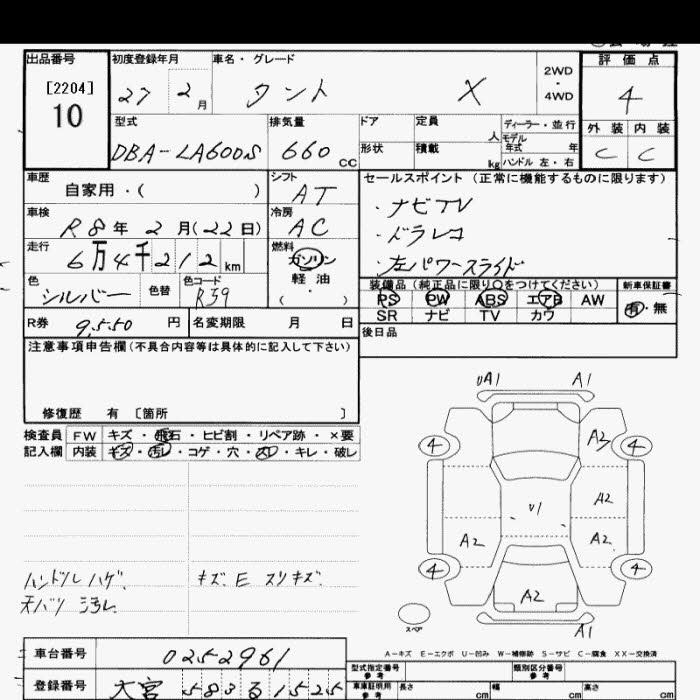 出品番号 初度登録年月 車名・グレード 評価点
[2204]
10
27 2月 タント X
2WD
・
4WD
4
外装 内装
C C
型式 排気量 ドア 定員 ディーラー・並行
DBA-LA600S 660 CC
人 モデル年式 年
形状 積載 kg ハンドル 左・右
車歴 シフト セールスポイント (正常に機能するものに限ります)
自家用・( ) AT
・ナビTV
車検 冷房
R8年 2月(22日) AC
・ドラレコ
走行 燃料
6万4千212km ガソリン
・左パワースライド
軽油
( )
色 色替 色コード
シルバー R59
装備品(純正品に限り○をつけてください) 新車保証書
PS PW ABS エアB AW
SR ナビ TV カワ
有・無
R券 9,550円 名変期限 月 日
後日品
注意事項申告欄(不具合内容等は具体的に記入して下さい)
修復歴 有 〔箇所 〕
検査員 FW キズ・飛石・ヒビ割・リペア跡・×要
記入欄 内装 キズ・汚レ・コゲ・穴・スレ・キレ・破レ
UA1 A1
4 A3 4
A2
U1
A2 A2
4 4
A2
A1
スペア
ハンドルハゲ. キズ.E スリキズ.
天バリ 汚レ.
A-キズ E-エクボ U-凹み W-補修跡 S-サビ C-腐食 XX-交換済
車台番号 0252961
型式指定番号 類別区分番号
参考 参考
登録番号 大宮 583 る 1525
車庫証明用 長さ cm 幅 cm 高さ cm
参考